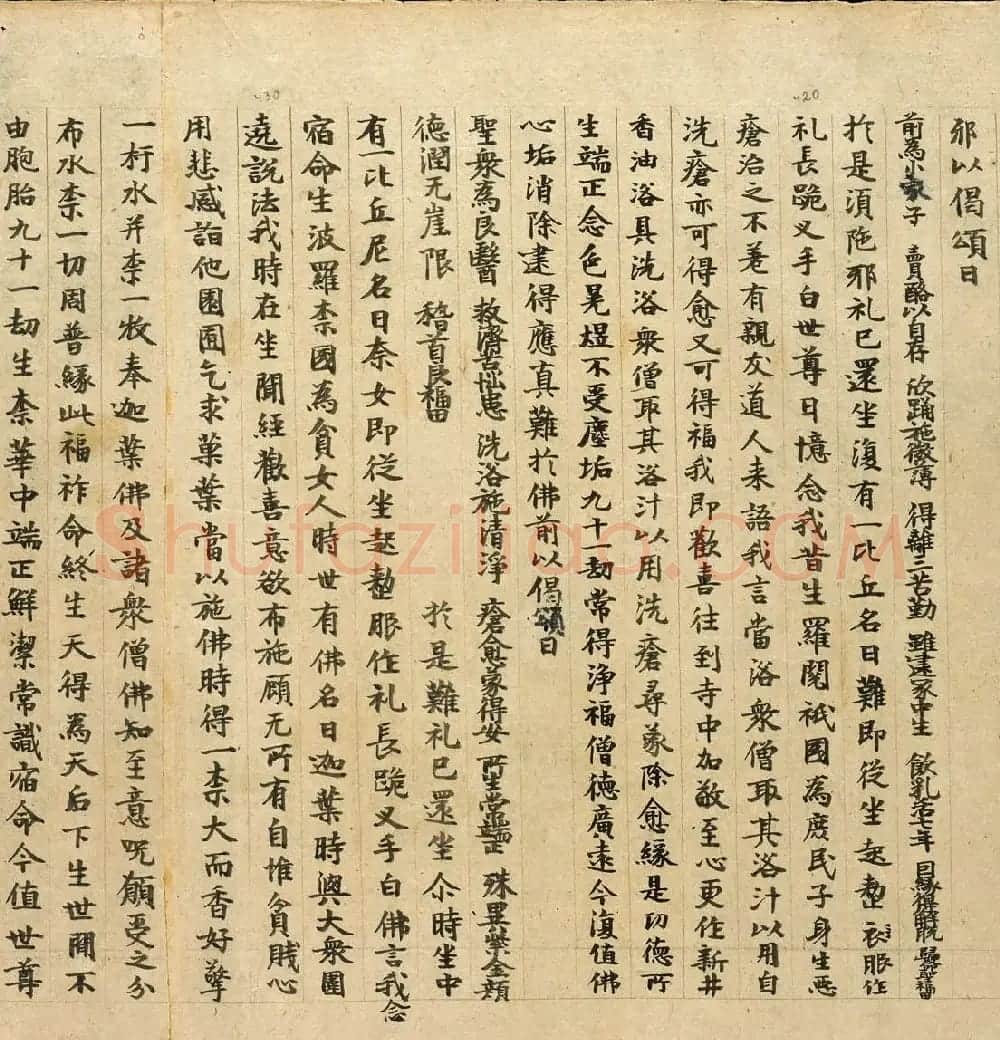 耶以偈頌曰
前為小家子 賣酪以自存 欣踊施微薄 得離三苦勤 雖遠豕中生 飲乳活七年 因緣得解脫 歸命福田
於是須陁耶礼已還坐復有一比丘名曰難即從坐起整衣服作
礼長跪叉手白世尊曰憶念我昔生羅閱祇國為庶民子身生惡
瘡治之不差有親友道人来語我言當浴衆僧取其浴汁以用自
洗瘡亦可得愈又可得福我即歡喜往到寺中加敬至心更作新井
香油浴具洗浴衆僧取其浴汁以用洗瘡尋蒙除愈緣是功德所
生端正念色晃煜不受塵垢九十一劫常得浄福僧德廣遠今復值佛
心垢消除逮得應真難於佛前以偈頌曰
聖衆為良醫 救濟苦惱患 洗浴施清淨 瘡愈蒙得安 所生常端正 殊異紫金顏
德潤无崖限 稽首良福田 於是難礼已還坐尒時坐中
有一比丘尼名曰奈女即從坐起整服作礼長跪叉手白佛言我念
宿命生波羅柰國為貧女人時世有佛名曰迦葉時與大衆圍
遶說法我時在坐聞經歡喜意欲布施顧无所有自惟貧賤心
用悲感詣他園囿乞求菓葉當以施佛時得一柰大而香好擎
一杅水并柰一枚奉迦葉佛及諸衆僧佛知至意呪願受之分
布水柰一切周普緣此福祚命終生天得為天后下生世間不
由胞胎九十一劫生柰華中端正鮮潔常識宿命今值世尊
20
30
Shufaziliao.COM